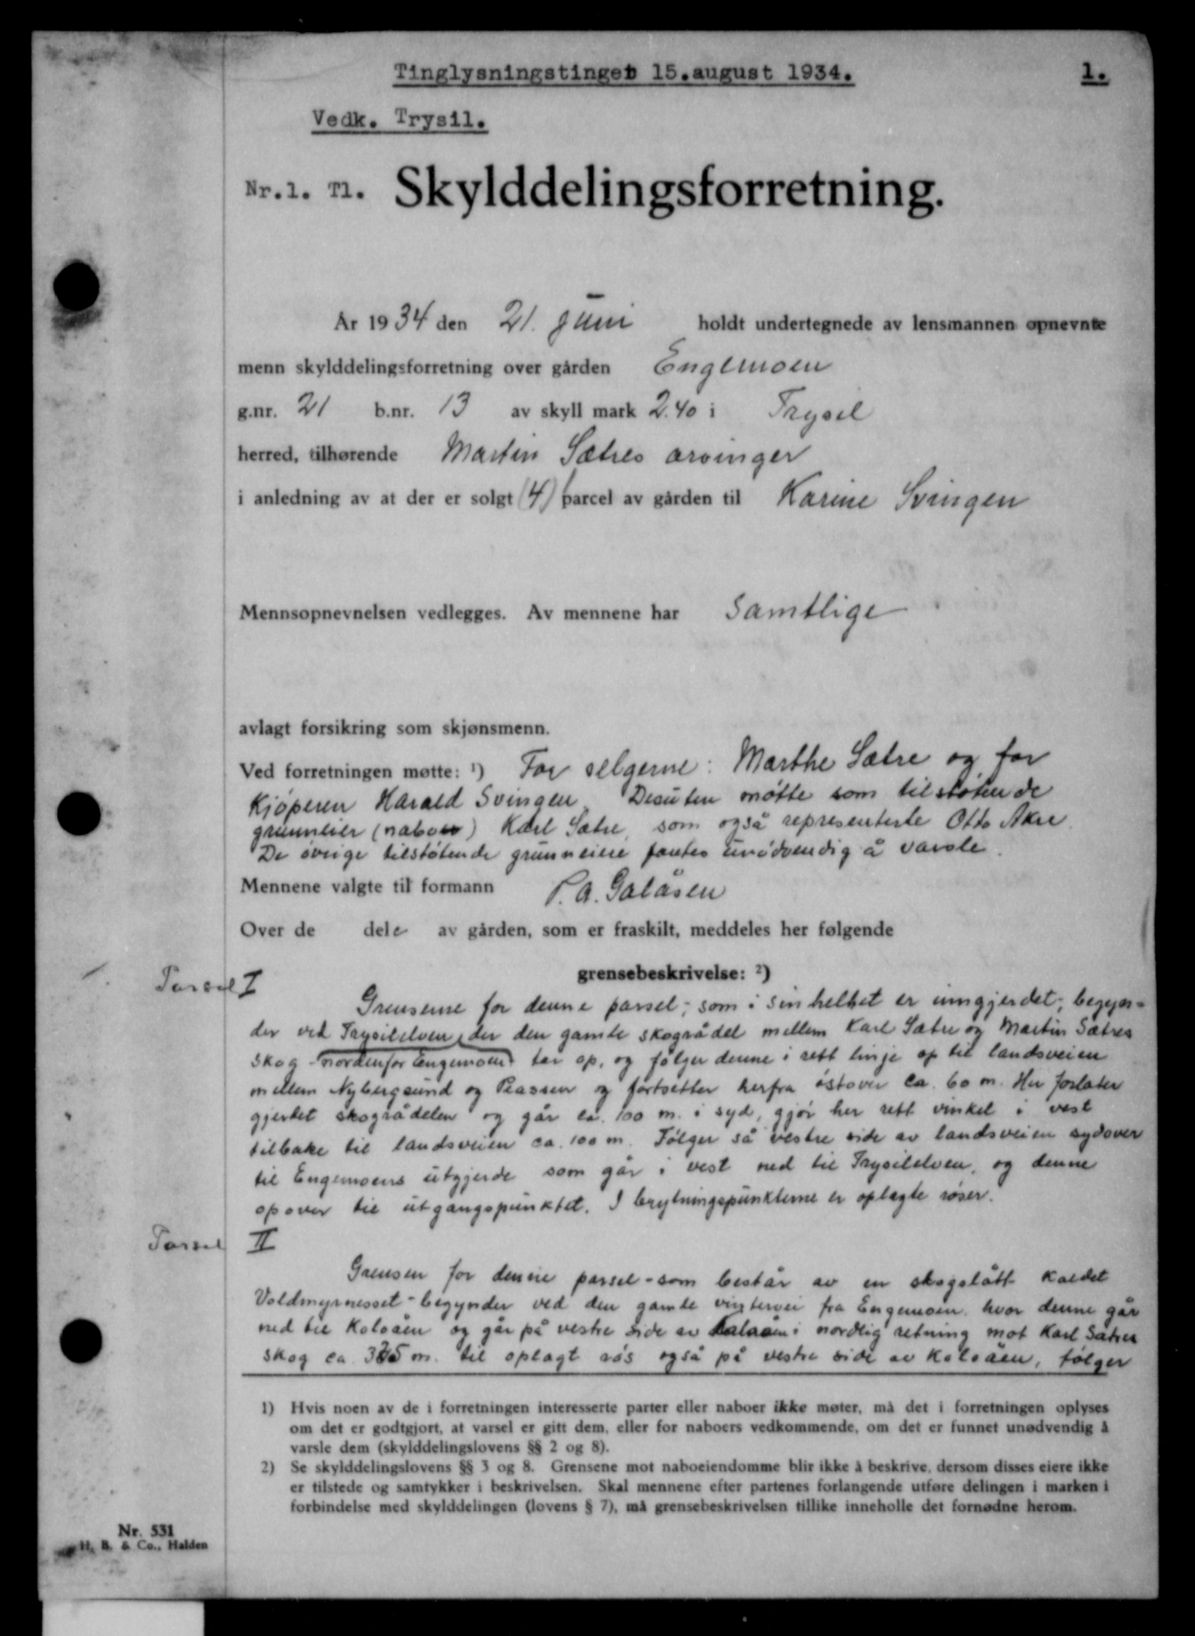 Tinglysningstinget 15.august 1934. 1.
Vedk. Trysil.
Nr.1. Tl. Skylddelingsforretning.
År 1934 den 21. juni holdt undertegnede av lensmannen opnevnte
menn skylddelingsforretning over gården Engemoen
g.nr. 21 b.nr. 13 av skyll mark 2.40 i Trysil
herred, tilhørende Martin Sætres arvinger
i anledning av at der er solgt (4) parcel av gården til Karine Svingen
Mennsopnevnelsen vedlegges. Av mennene har samtlige
avlagt forsikring som skjønsmenn.
Ved forretningen møtte: 1) For selgerne: Marthe Sætre og for
Kjøperen Harald Svingen. Desuten møtte som tilstøtende
grunneier (nabo) Karl Sætre, som også representerte Otto Akre.
De øvrige tilstøtende grunneiere fantes unødvendig å varsle.
Mennene valgte til formann P. A. Galåsen
Over de dele av gården, som er fraskilt, meddeles her følgende
grensebeskrivelse: 2)
Parsel I
Grensene for denne parsel, som i sin helhet er inngjerdet, begyn=
der ved Trysilelven, der den gamle skogrådel mellem Karl Sætre og Martin Sætres
skog nordenfor Engemoen tar op, og følger denne i rett linje op til landsveien
mellem Nybergsund og Plassen og fortsetter herfra østover ca. 60 m. Her forlater
gjerdet skogrådelen og går ca. 100 m. i syd, gjør her rett vinkel i vest
tilbake til landsveien ca. 100 m. Følger så vestre side av landsveien sydover
til Engemoens utgjerde som går i vest ned til Trysilelven, og denne
opover til utgangspunktet. I brytningspunkterne er oplagte røser.
Parsel II
Grensen for denne parsel - som består av en skogslått kaldet
Voldmyrnesset - begynder ved den gamle vintervei fra Engemoen, hvor denne går
ned til Koloåen og går på vestre side av Koloåen i nordlig retning mot Karl Sætres
skog ca. 325 m. til oplagt røs også på vestre side av Koloåen, følger
1) Hvis noen av de i forretningen interesserte parter eller naboer ikke møter, må det i forretningen oplyses
om det er godtgjort, at varsel er gitt dem, eller for naboers vedkommende, om det er funnet unødvendig å
varsle dem (skylddelingslovens §§ 2 og 8).
2) Se skylddelingslovens §§ 3 og 8. Grensene mot naboeiendomme blir ikke å beskrive, dersom disses eiere ikke
er tilstede og samtykker i beskrivelsen. Skal mennene efter partenes forlangende utføre delingen i marken i
forbindelse med skylddelingen (lovens § 7), må grensebeskrivelsen tillike inneholle det fornødne herom.
Nr. 531
H. B. & Co., Halden